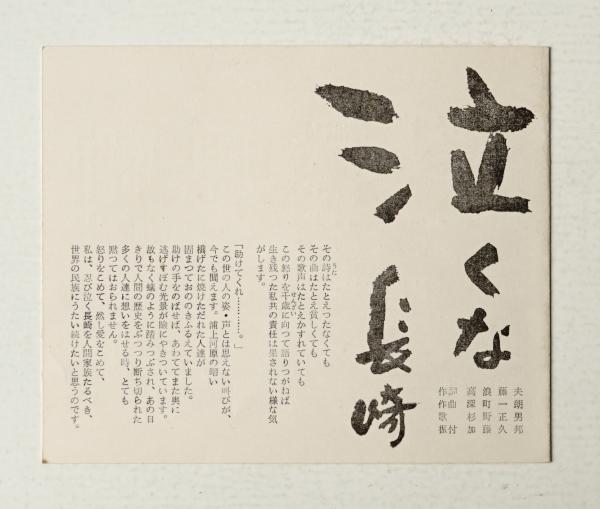 泣くな
長崎
作詞 高浪藤夫
作曲 深町一朗
歌 杉野正男
振付 加藤久邦
その詩はたとえつたなくても
その曲はたとえ貧しくても
その歌声はたとえかすれていても
この怒りを千歳に向って語りつがねば
生き残った私共の責任は果されない様な気
がします。
「助けてくれ…………。」
この世の人の姿・声とは思えない叫びが、
今でも聞えます。浦上河原の暗い
橋げたに焼けただれた人達が
固まっておののきふるえていました。
助けの手をのばせば、あわててまた奥に
逃げすぼむ光景が瞼にやきついています。
故もなく蟻のように踏みつぶされ、あの日
きりで人間の歴史をぶっつり断ち切られた
多くの人達に想いをはせる時、とても
黙ってはおられません。
怒りをこめて、然し愛をこめて、
私は、忍び泣く長崎を人間家族たるべき、
世界の民族にうたい続けたいと思うのです。